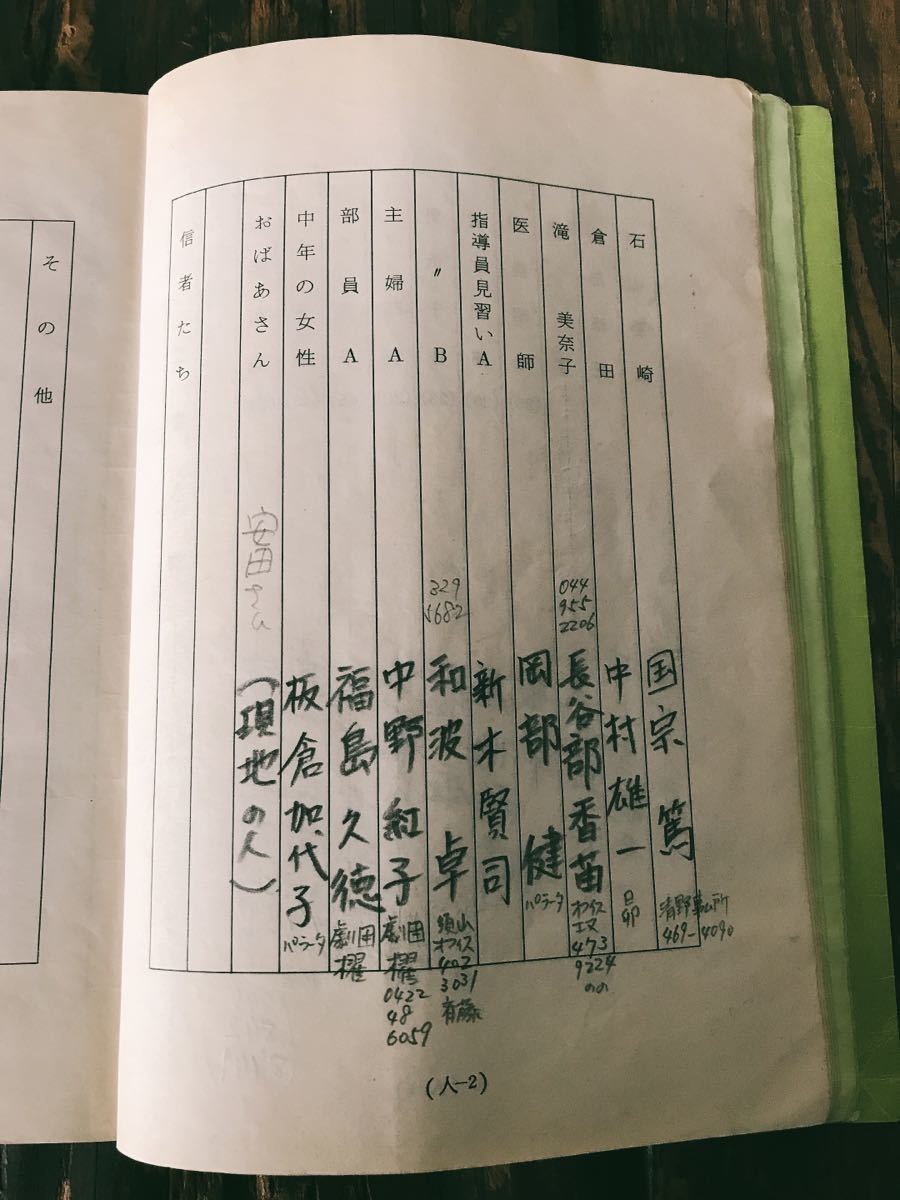 石崎
国宗篤
清野事ム所
469-4090
倉田
中村雄一
昴
滝美奈子
044
955
2206
長谷部香苗
オフィス
473
9224
医師
岡部健
パラータ
指導員見習いA
新木賢司
〃B
329
5682
和波卓
オフィス
402
3031
主婦A
中野紅子
劇団
櫂
0422
48
6059
部員A
福島久徳
劇団
櫂
中年の女性
板倉加代子
パラータ
おばあさん
安田さん
(現地の人)
信者たち
(人-2)
その他